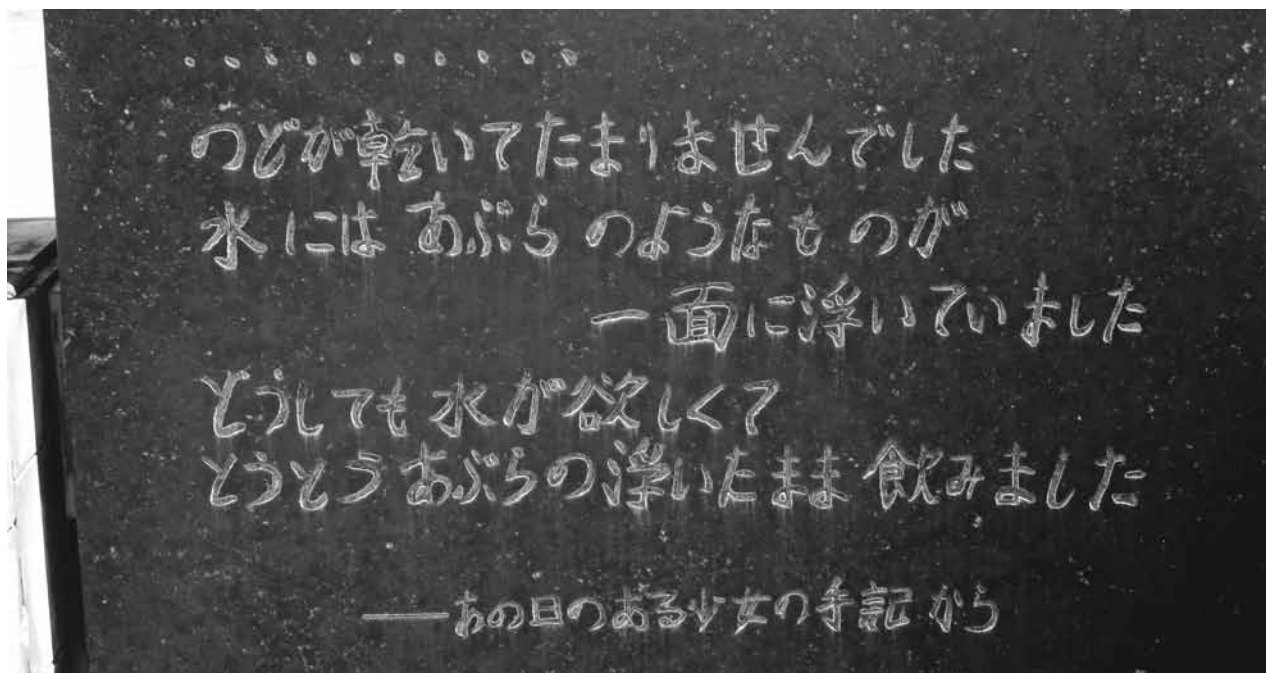 ・・・・・・・・・・・
のどが乾いてたまりませんでした
水にはあぶらのようなものが
一面に浮いていました
どうしても水が欲しくて
とうとうあぶらの浮いたまま飲みました
——あの日のある少女の手記から